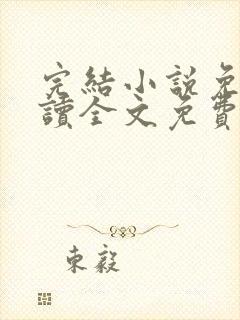 完結小說免
讀全文免費
東毅